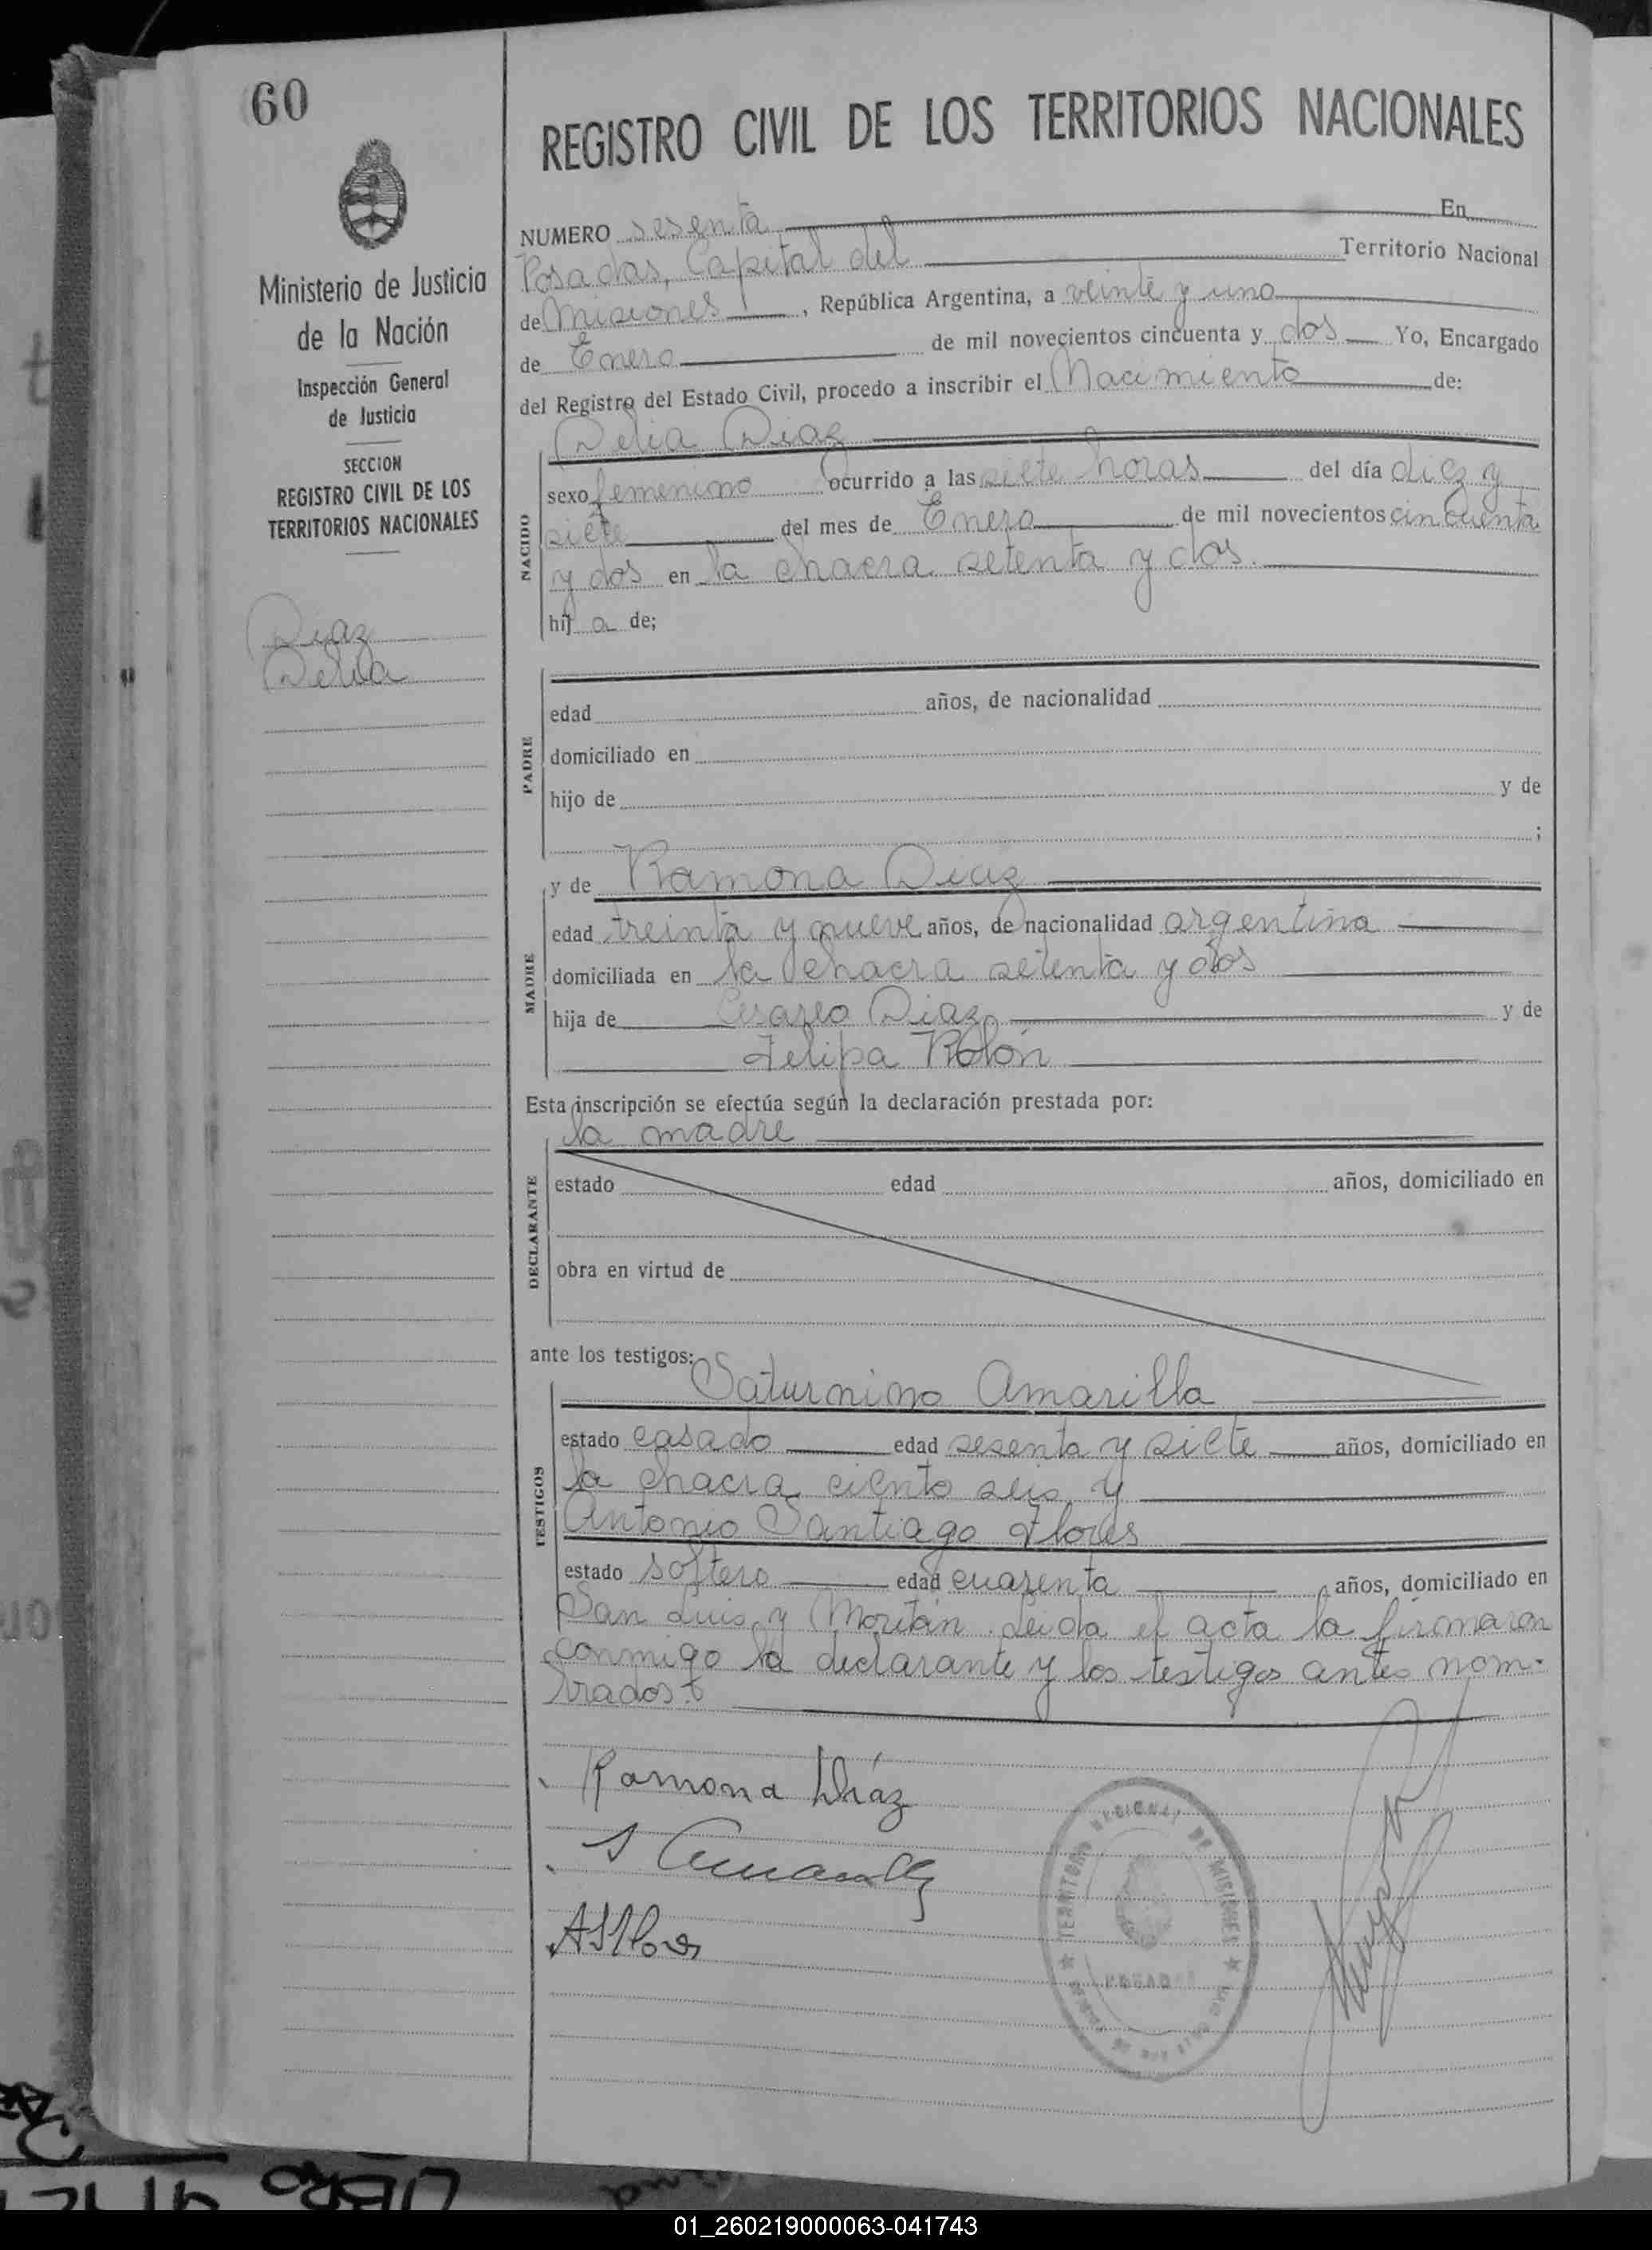 60
Ministerio de Justicia
de la Nación
Inspección General
de Justicia
SECCION
REGISTRO CIVIL DE LOS
TERRITORIOS NACIONALES
Diaz
Delia
REGISTRO CIVIL DE LOS TERRITORIOS NACIONALES
NUMERO sesenta En
Posadas, Capital del Territorio Nacional
de Misiones, República Argentina, a veinte y uno
de Enero de mil novecientos cincuenta y dos Yo, Encargado
del Registro del Estado Civil, procedo a inscribir el Nacimiento de:
Delia Diaz
NACIDO
sexo femenino ocurrido a las siete horas del día diez y
siete del mes de Enero de mil novecientos cincuenta
y dos en la chacra setenta y dos.
hij a de;
PADRE
edad años, de nacionalidad
domiciliado en
hijo de y de
;
MADRE
y de Ramona Diaz
edad treinta y nueve años, de nacionalidad argentina
domiciliada en la chacra setenta y dos
hija de Cesareo Diaz y de
Felipa Rolón
Esta inscripción se efectúa según la declaración prestada por:
la madre
DECLARANTE
estado edad años, domiciliado en
obra en virtud de
ante los testigos:
Saturnino Amarilla
TESTIGOS
estado casado edad sesenta y siete años, domiciliado en
la chacra ciento seis y
Antonio Santiago Flores
estado soltero edad cuarenta años, domiciliado en
San Luis y Moritán. Leida el acta la firmaron
conmigo la declarante y los testigos antes nom-
brados.
Ramona Díaz
S Amarilla
ASFlores
TERRITORIO NACIONAL DE MISIONES
POSADAS
LIBRO
01_260219000063-041743